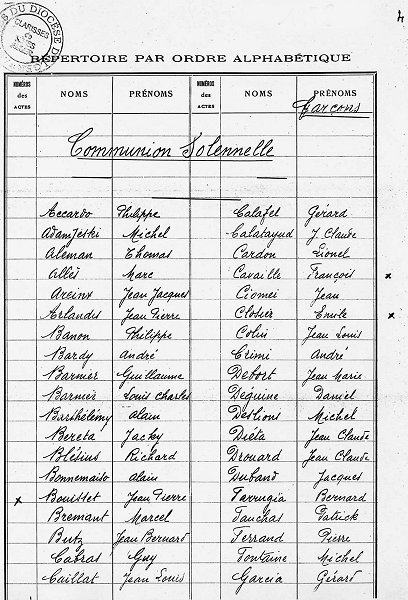 4
CLARISSES
RÉPERTOIRE PAR ORDRE ALPHABÉTIQUE
NUMÉROS des ACTES NOMS PRÉNOMS NUMÉROS des ACTES NOMS PRÉNOMS
Garçons
Communion Solennelle
Accardo Philippe Calafel Gérard
Adamjeski Michel Calatayud J. Claude
Aleman Thomas Cardon Lionel
Allès Marc Cavaille François x
Areinx Jean Jacques Ciomei Jean
Arlandis Jean Pierre Closier Emile x
Banon Philippe Colin Jean Louis
Bardy André Crimi André
Barnier Guillaume Debort Jean Marie
Barnier Louis Charles Déquine Daniel
Barthélémy Alain Deslions Michel
Bereta Jacky Diéta Jean Claude
Blésius Richard Drouard Jean Claude
Bonnemaiso Alain Duband Jacques
x Bouisset Jean Pierre Farrugia Bernard
Bremant Marcel Fauchas Patrick
Butz Jean Bernard Ferrand Pierre
Cabras Guy Fontaine Michel
Caillat Jean Louis Garcia Gérard